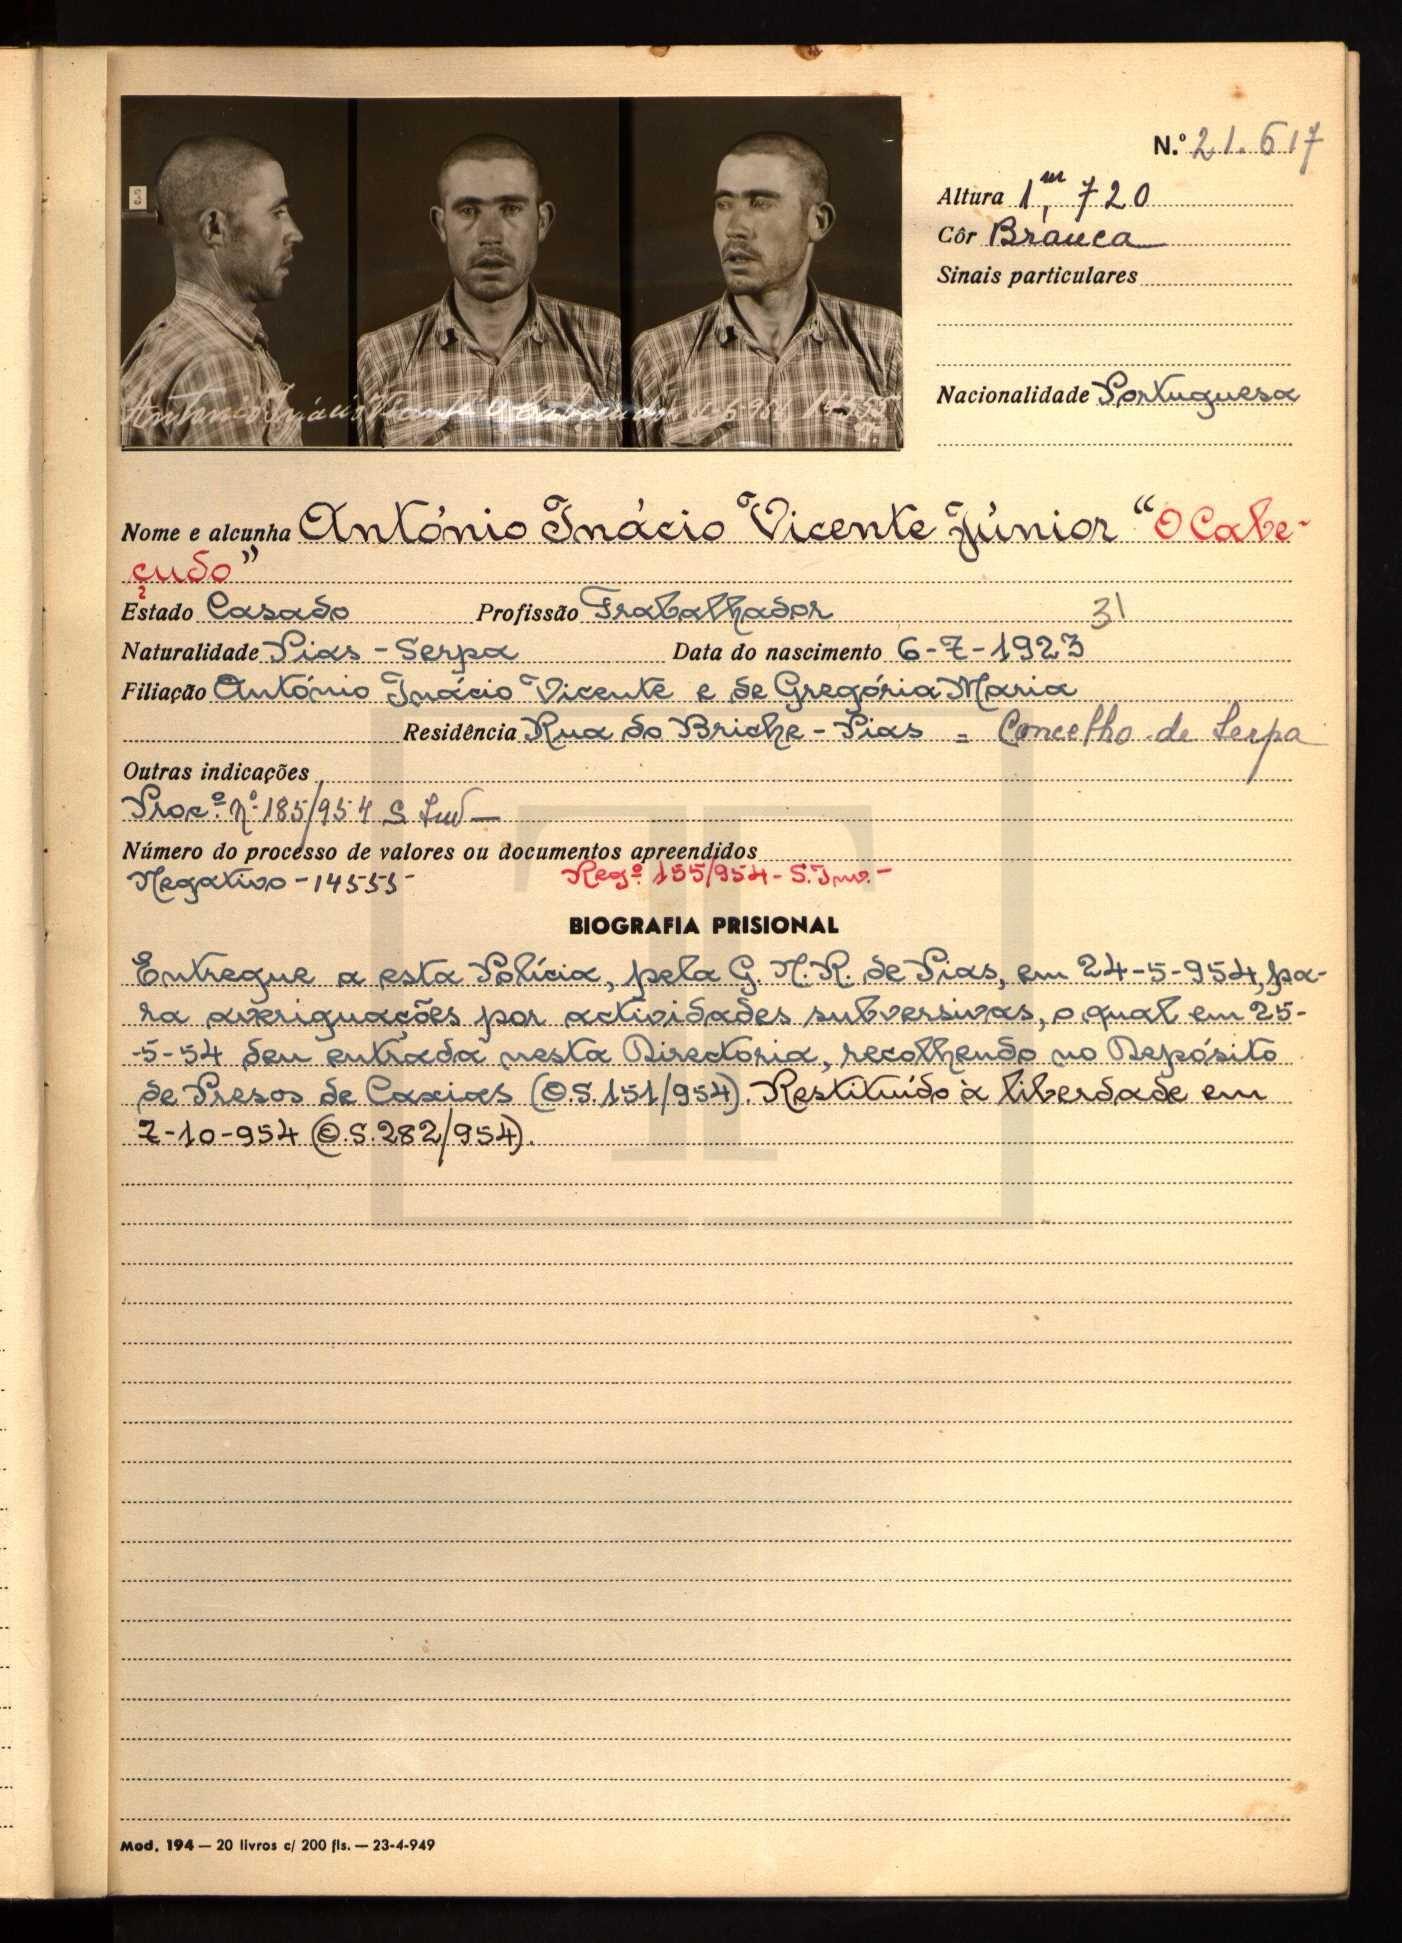 N.º 21.617
Altura 1,m720
Côr Branca
Sinais particulares
Nacionalidade Portuguesa
António Inácio Vicente O Cabeçudo 14555
Nome e alcunha António Inácio Vicente Júnior "O Cabe-
çudo"
Estado Casado Profissão Trabalhador 31
Naturalidade Pias - Serpa Data do nascimento 6-7-1923
Filiação António Inácio Vicente e de Gregória Maria
Residência Rua do Briche - Pias = Concelho de Serpa
Outras indicações
Proc.º nº 185/954 S. Inv —
Número do processo de valores ou documentos apreendidos
Negativo - 14555 - Reg.º 155/954 - S. Inv. -
BIOGRAFIA PRISIONAL
Entregue a esta Polícia, pela G. N. R. de Pias, em 24-5-954, pa-
ra averiguações por actividades subversivas, o qual em 25-
-5-54 deu entrada nesta Directoria, recolhendo no Depósito
de Presos de Caxias (O.S. 151/954). Restituído à liberdade em
7-10-954 (O.S. 282/954).
Mod. 194 — 20 livros c/ 200 fls. — 23-4-949